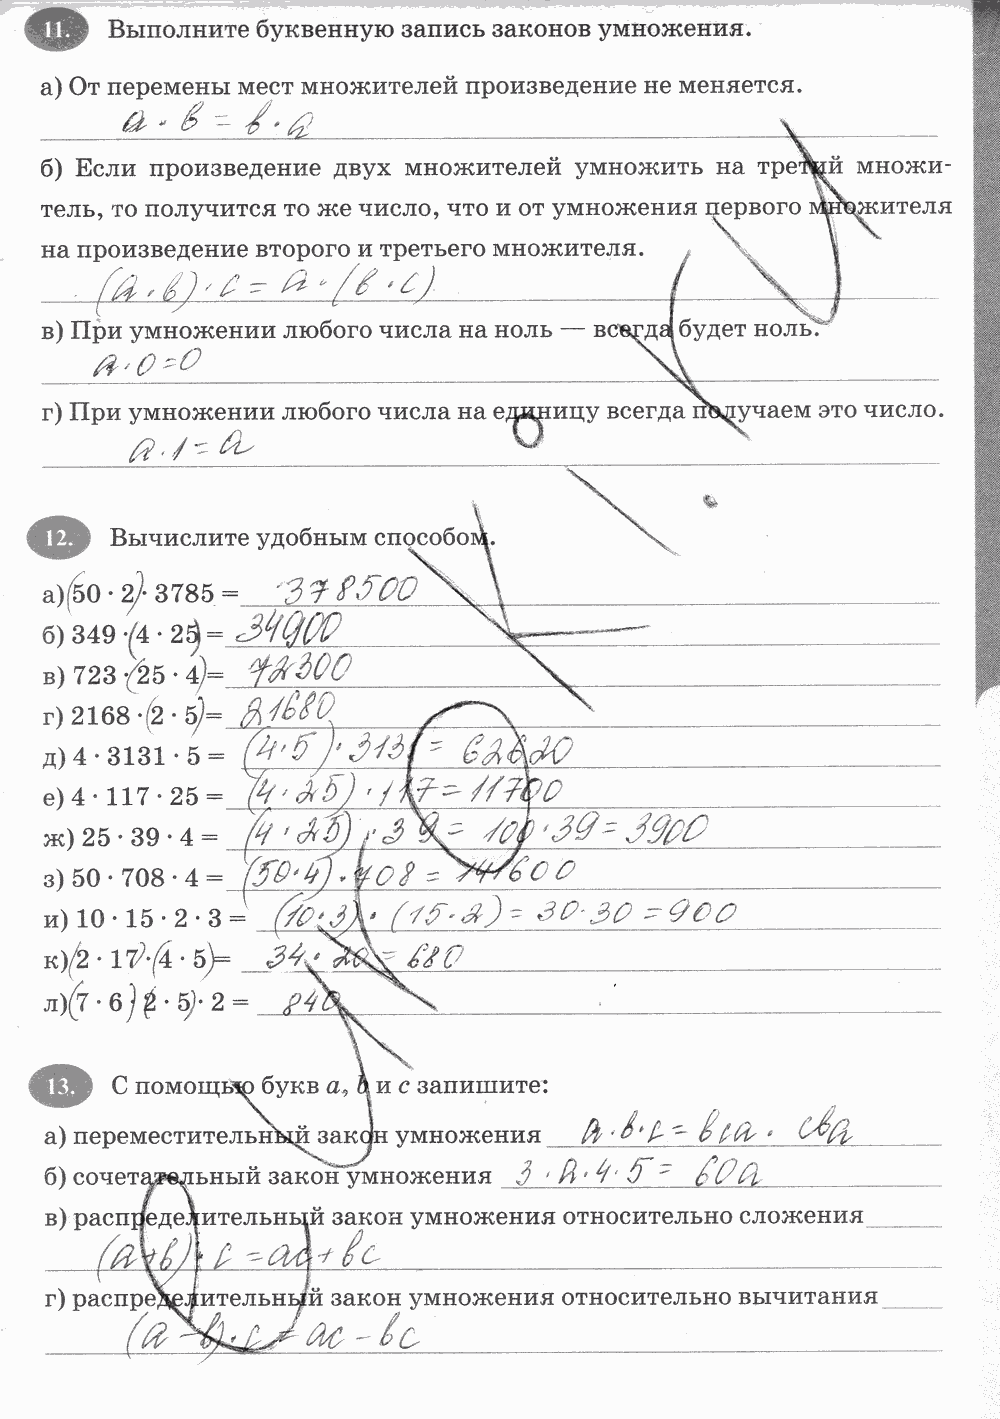 11. Выполните буквенную запись законов умножения.
а) От перемены мест множителей произведение не меняется.
a · b = b · a
б) Если произведение двух множителей умножить на третий множи-
тель, то получится то же число, что и от умножения первого множителя
на произведение второго и третьего множителя.
(a · b) · c = a · (b · c)
в) При умножении любого числа на ноль — всегда будет ноль.
a · 0 = 0
г) При умножении любого числа на единицу всегда получаем это число.
a · 1 = a
12. Вычислите удобным способом.
а) (50 · 2) · 3785 = 378500
б) 349 · (4 · 25) = 34900
в) 723 · (25 · 4) = 72300
г) 2168 · (2 · 5) = 21680
д) 4 · 3131 · 5 = (4 · 5) · 3131 = 62620
е) 4 · 117 · 25 = (4 · 25) · 117 = 11700
ж) 25 · 39 · 4 = (4 · 25) · 39 = 100 · 39 = 3900
з) 50 · 708 · 4 = (50 · 4) · 708 = 141600
и) 10 · 15 · 2 · 3 = (10 · 3) · (15 · 2) = 30 · 30 = 900
к) (2 · 17) · (4 · 5) = 34 · 20 = 680
л) (7 · 6) · (2 · 5) · 2 = 840
13. С помощью букв a, b и c запишите:
а) переместительный закон умножения a · b · c = bca · cba
б) сочетательный закон умножения 3 · a · 4 · 5 = 60a
в) распределительный закон умножения относительно сложения
(a + b) · c = ac + bc
г) распределительный закон умножения относительно вычитания
(a − b) · c = ac − bc